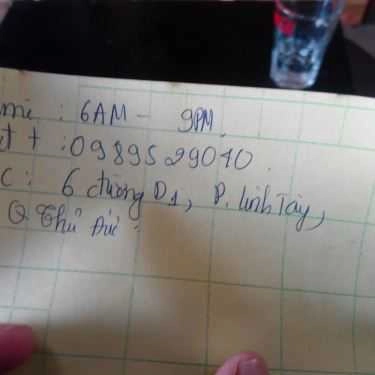 me : 6AM - 9PM.
t + : 0989529040.
C : 6 đường D1, P. Linh Tây,
Q. Thủ Đức.